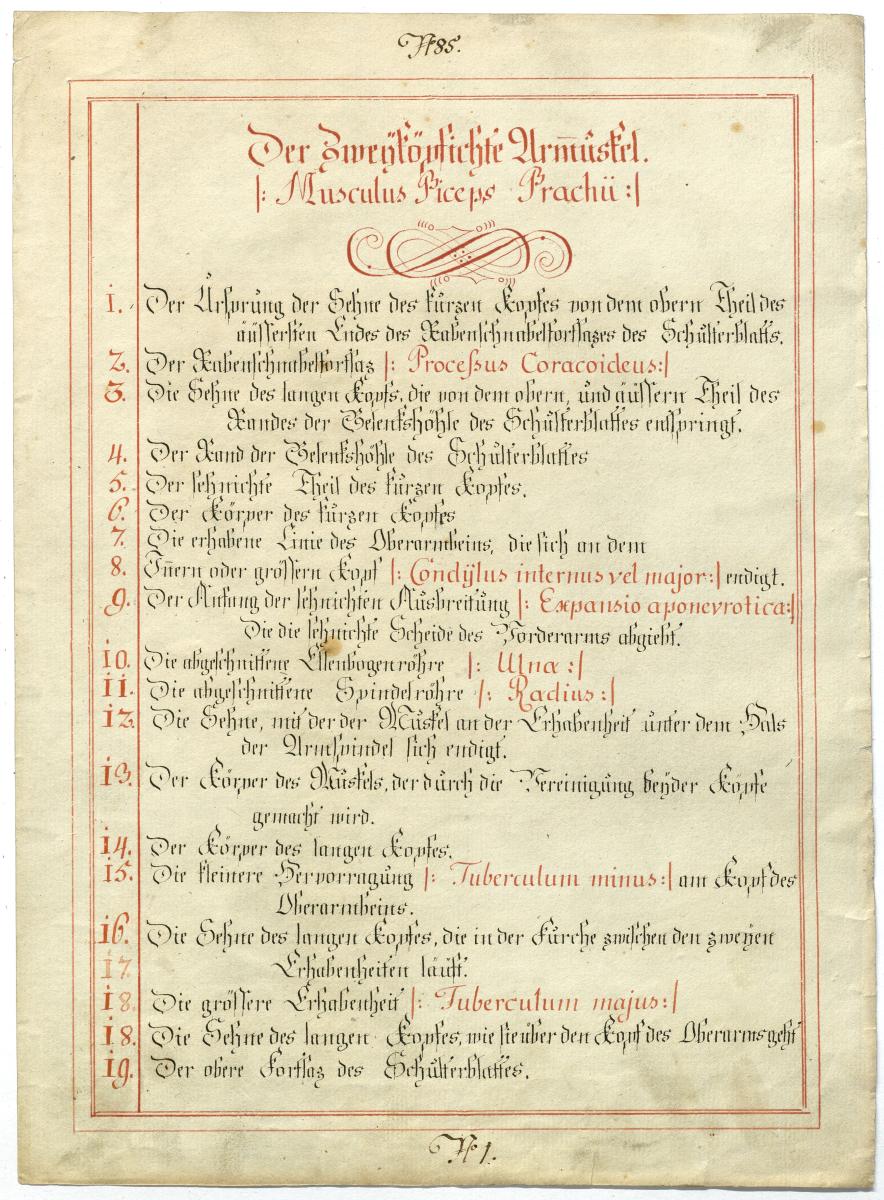 N° 85.
Der zweyköpfichte Arm̅uskel.
|: Musculus Biceps Brachii :|
1. Der Ursprung der Sehne des kurzen Kopfes von dem obern Theil des
äüssersten Endes des Rabenschnabelfortsazes des Schulterblatts.
2. Der Rabenschnabelfortsaz |: Processus Coracoideus :|
3. Die Sehne des langen Kopfs, die von dem obern, und äüssern Theil des
Randes der Gelenkshöhle des Schulterblattes entspringt.
4. Der Rand der Gelenkshöhle des Schulterblattes
5. Der sehnichte Theil des kurzen Kopfes.
6. Der Körper des kurzen Kopfes
7. Die erhabene Linie des Oberarmbeins, die sich an dem
8. In̅ern oder grössern Kopf |: Condÿlus internus vel major :| endigt.
9. Der Anfang der sehnichten Ausbreitung |: Expansio aponevrotica :|
Die die sehnichte Scheide des Vorderarms abgiebt.
10. Die abgeschnittene Ellenbogenröhre |: Ulnæ :|
11. Die abgeschnittene Spindelröhre |: Radius :|
12. Die Sehne, mit der der Muskel an der Erhabenheit unter dem Hals
der Armspindel sich endigt.
13. Der Körper des Muskels, der durch die Vereinigung beÿder Köpfe
gemacht wird.
14. Der Körper des langen Kopfes.
15. Die kleinere Hervorragung |: Tuberculum minus :| am Kopf des
Oberarmbeins.
16. Die Sehne des langen Kopfes, die in der Furche zwischen den zweÿen
17. Erhabenheiten läuft.
18. Die grössere Erhabenheit |: Tuberculum majus :|
18. Die Sehne des langen Kopfes, wie sie über den Kopf des Oberarms geht
19. Der obere Fortsaz des Schulterblattes.
N° 1.